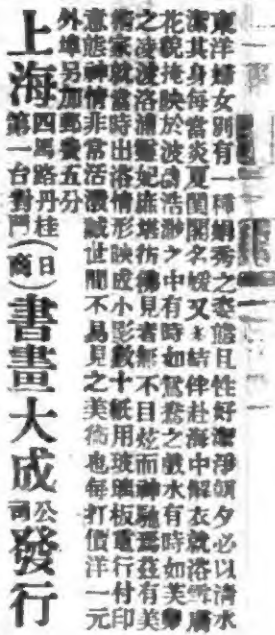 東洋婦女別有一種娟秀之姿態且性好潔淨朝夕必以清水
潔其身每當炎夏閨閣名媛又結伴赴海中解衣就浴雪膚
花貌掩映於波濤浩渺之中有時如鴛鴦之戲水有時如芙蓉
之凌波洛浦靈妃庶堪彷彿見者無不目炫而神馳焉茲有美
術家就當時出浴情形映成小影數十紙用玻璃板重行付印
意態神情非常活潑誠世間不易見之美術也每打價洋一元
外埠另加郵費五分
上海四馬路丹桂第一台對門(日商)書畫大成公司發行